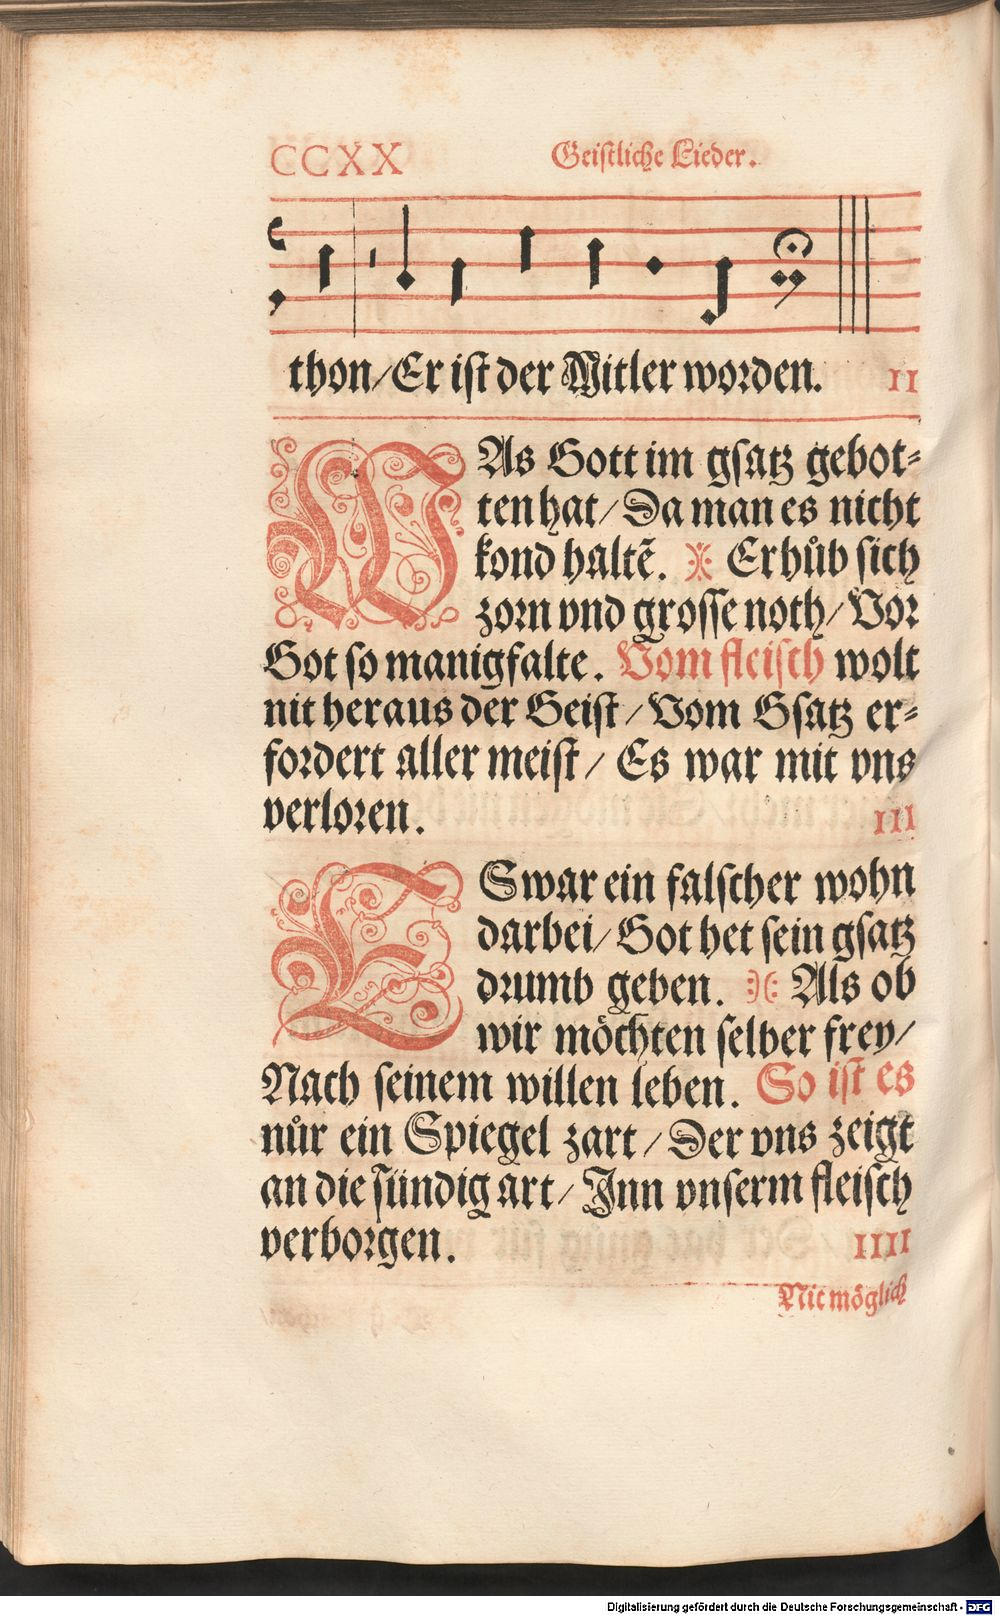 CCXX Geistliche Lieder.
thon/ Er ist der Mitler worden. II
WAs Gott im gsatz gebot⸗
ten hat/ Da man es nicht
kond haltẽ. Erhůb sich
zorn vnd grosse noth/ Vor
Got so manigfalte. Vom fleisch wolt
nit heraus der Geist/ Vom Gsatz er⸗
fordert aller meist/ Es war mit vns
verloren. III
ES war ein falscher wohn
darbei/ Got het sein gsatz
drumb geben. Als ob
wir möchten selber frey/
Nach seinem willen leben. So ist es
nůr ein Spiegel zart/ Der vns zeigt
an die sündig art/ Inn vnserm fleisch
verborgen. IIII
Nit möglich
Digitalisierung gefördert durch die Deutsche Forschungsgemeinschaft - DFG